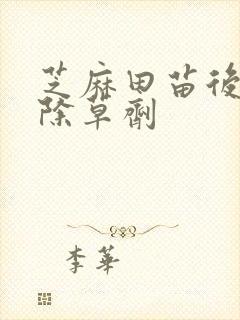 芝麻田苗後
除草劑
李華